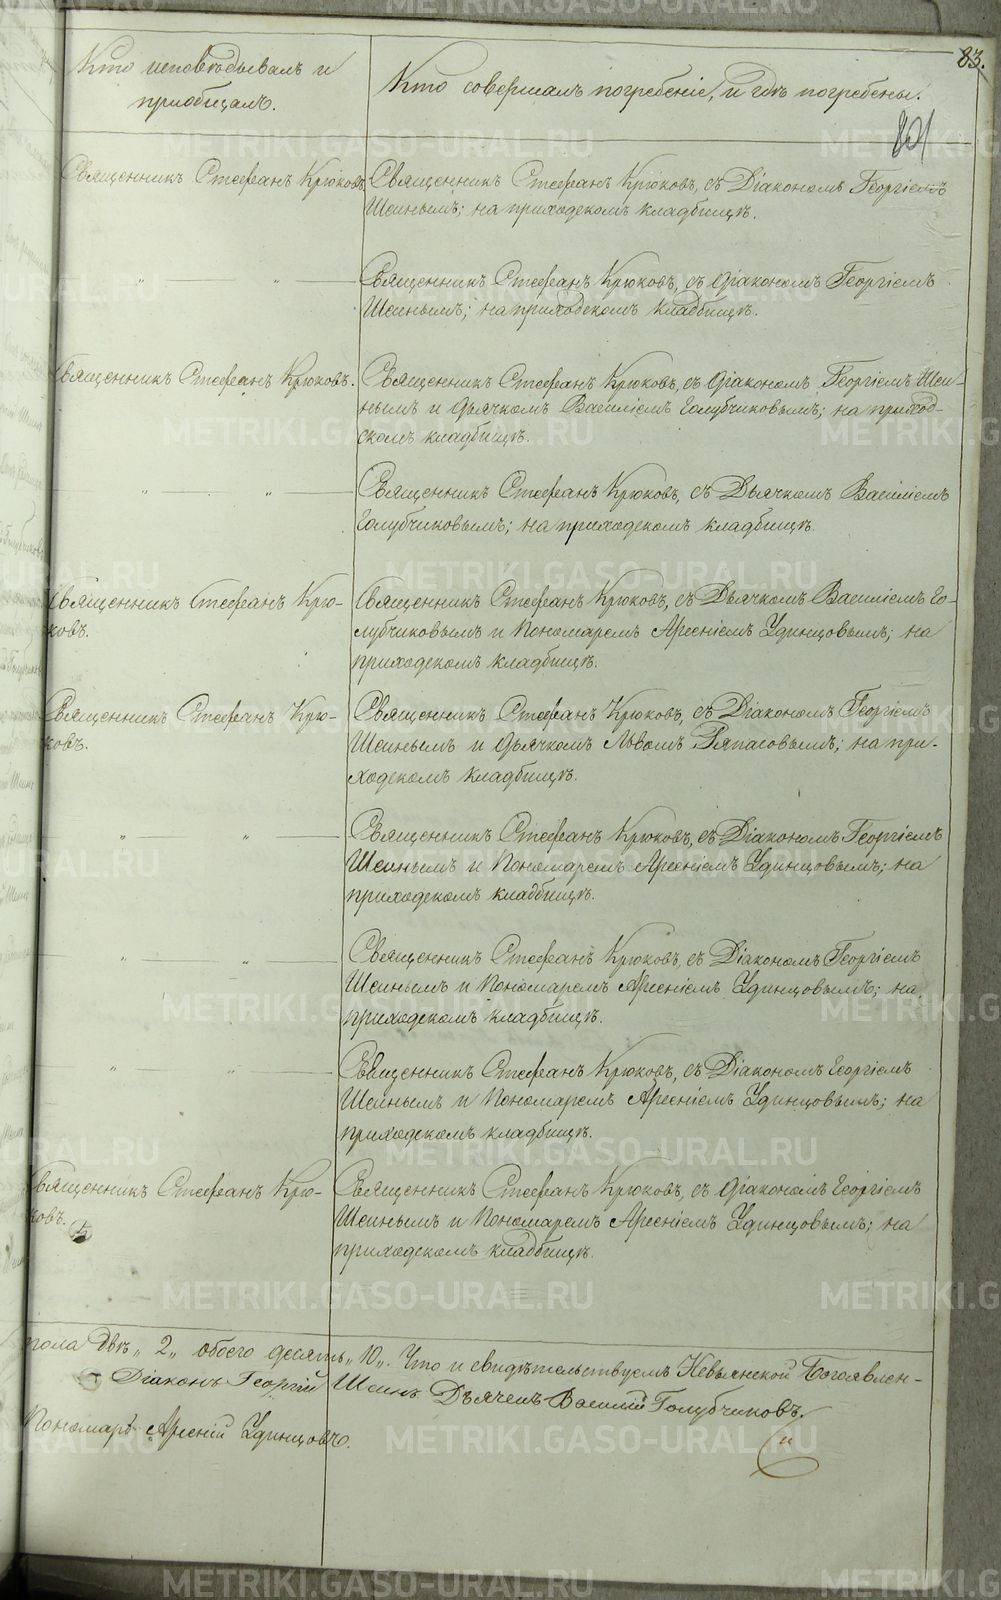 83.
Кто исповѣдывалъ и
приобщалъ.
Кто совершалъ погребеніе, и гдѣ погребены.
Священникъ Стефанъ Крюковъ.
Священникъ Стефанъ Крюковъ, съ Діакономъ Георгіемъ
Шеинымъ; на приходскомъ кладбищѣ.
„ „
Священникъ Стефанъ Крюковъ, съ Діакономъ Георгіемъ
Шеинымъ; на приходскомъ кладбищѣ.
Священникъ Стефанъ Крюковъ.
Священникъ Стефанъ Крюковъ, съ Діакономъ Георгіемъ Шеи-
нымъ и Дьячкомъ Василіемъ Голубчиковымъ; на приход-
скомъ кладбищѣ.
„ „
Священникъ Стефанъ Крюковъ, съ Дьячкомъ Василіемъ
Голубчиковымъ; на приходскомъ кладбищѣ.
Священникъ Стефанъ Крю-
ковъ.
Священникъ Стефанъ Крюковъ, съ Дьячкомъ Василіемъ Го-
лубчиковымъ и Пономаремъ Арсеніемъ Удинцовымъ; на
приходскомъ кладбищѣ.
Священникъ Стефанъ Крю-
ковъ.
Священникъ Стефанъ Крюковъ, съ Діакономъ Георгіемъ
Шеинымъ и Дьячкомъ Львомъ Ряпасовымъ; на при-
ходскомъ кладбищѣ.
„ „
Священникъ Стефанъ Крюковъ, съ Діакономъ Георгіемъ
Шеинымъ и Пономаремъ Арсеніемъ Удинцовымъ; на
приходскомъ кладбищѣ.
„ „
Священникъ Стефанъ Крюковъ, съ Діакономъ Георгіемъ
Шеинымъ и Пономаремъ Арсеніемъ Удинцовымъ; на
приходскомъ кладбищѣ.
„ „
Священникъ Стефанъ Крюковъ, съ Діакономъ Георгіемъ
Шеинымъ и Пономаремъ Арсеніемъ Удинцовымъ; на
приходскомъ кладбищѣ.
Священникъ Стефанъ Крю-
ковъ.
Священникъ Стефанъ Крюковъ, съ Діакономъ Георгіемъ
Шеинымъ и Пономаремъ Арсеніемъ Удинцовымъ; на
приходскомъ кладбищѣ.
пола двѣ „2„ обоего десять „10„. Что и свидѣтельствуемъ Невьянской Богоявлен-
Діаконъ Георгій Шеинъ Дьячекъ Василій Голубчиковъ.
Пономарь Арсеній Удинцовъ.
METRIKI.GASO-URAL.RU